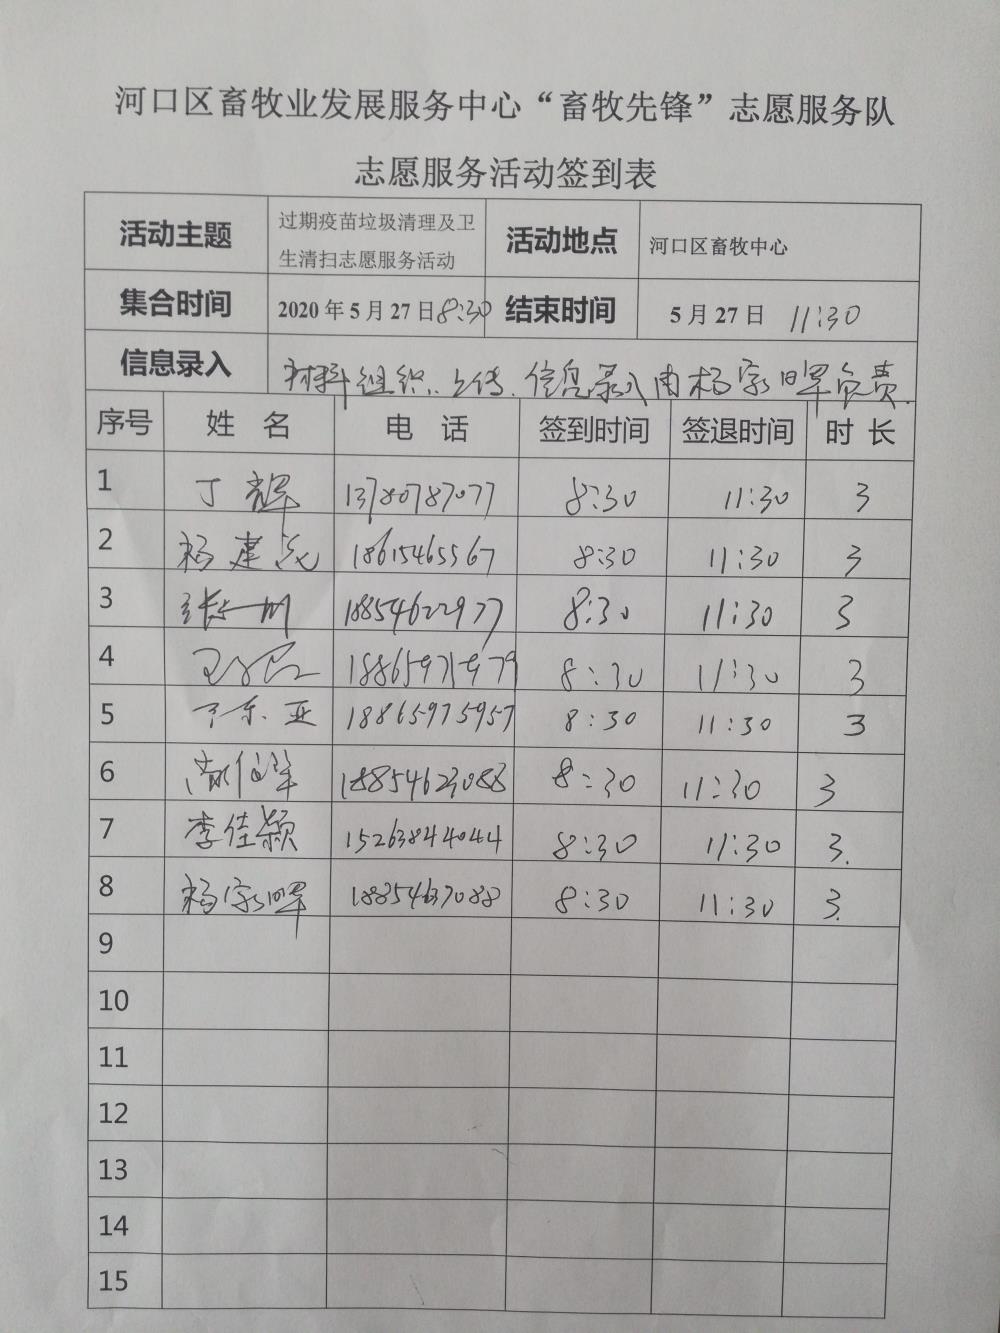 河口区畜牧业发展服务中心“畜牧先锋”志愿服务队
志愿服务活动签到表
活动主题 过期疫苗垃圾清理及卫生清扫志愿服务活动 活动地点 河口区畜牧中心
集合时间 2020年5月27日8:30 结束时间 5月27日 11:30
信息录入 材料组织、上传、信息录入由杨家晖负责.
序号 姓 名 电 话 签到时间 签退时间 时 长
1 丁辉 13780787077 8:30 11:30 3
2 杨建 18615465567 8:30 11:30 3
3 张 18854622977 8:30 11:30 3
4 8:30 11:30 3
5 东亚 18865975957 8:30 11:30 3
6 18854623088 8:30 11:30 3
7 李佳颖 15263844044 8:30 11:30 3.
8 杨家晖 18854637088 8:30 11:30 3.
9
10
11
12
13
14
15